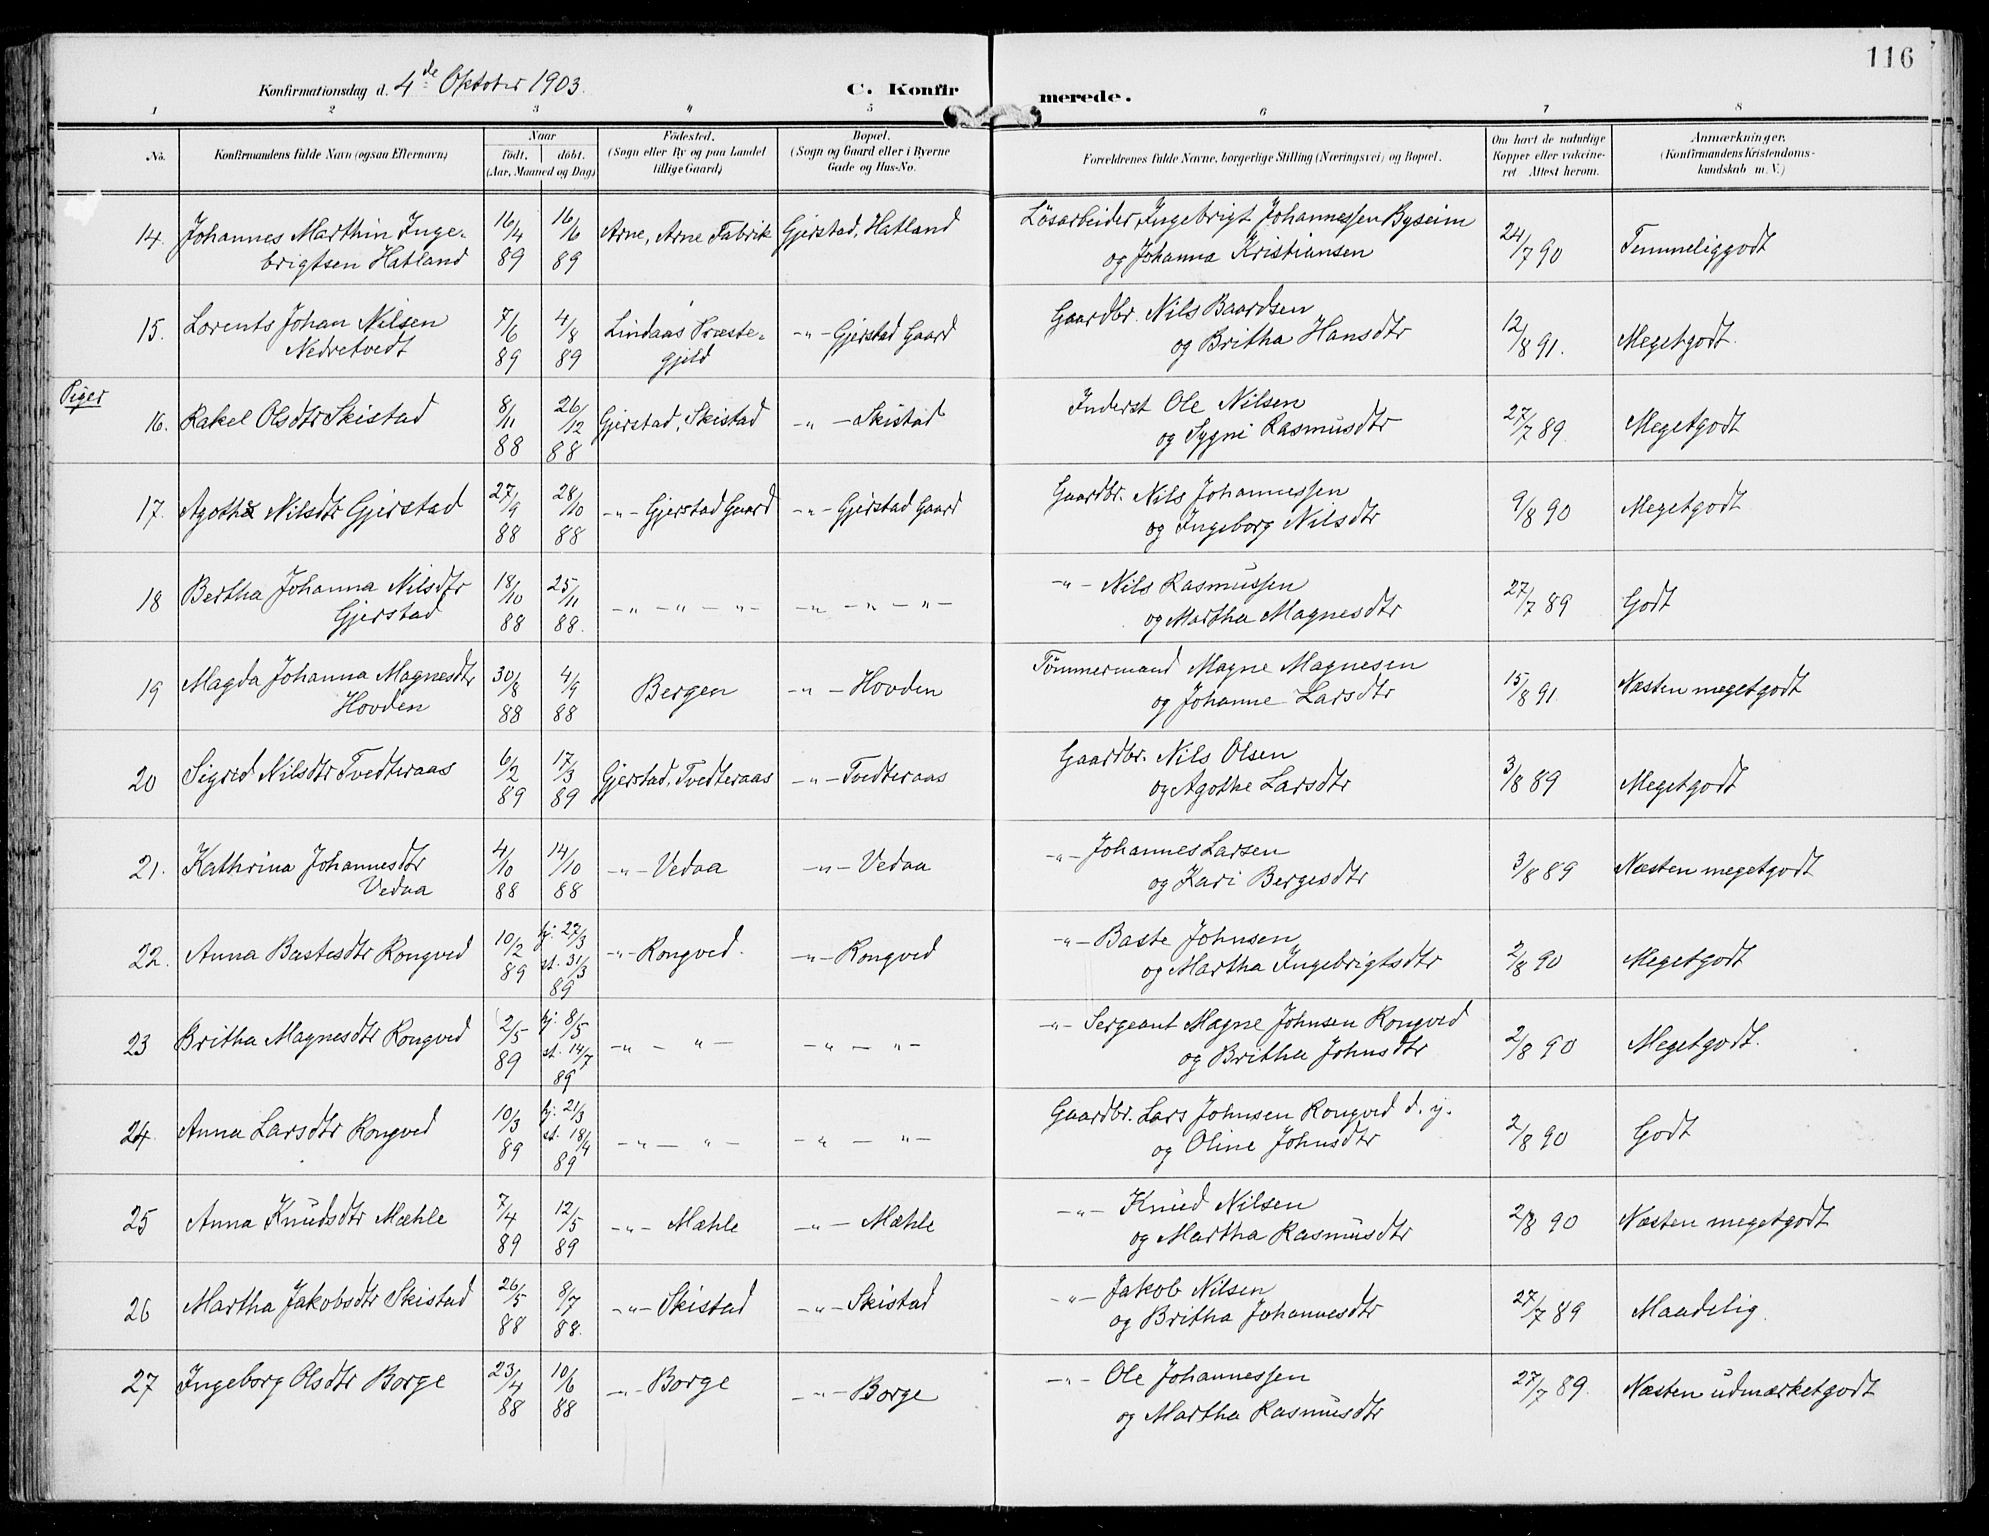 116
Konfirmationsdag d. 4de Oktober 1903.
C. Konfirmerede.
1 2 3 4 5 6 7 8
No. | Konfirmandens fulde Navn (ogsaa Efternavn) | Naar født. | døbt. (Aar, Maaned og Dag) | Fødested. (Sogn eller By og paa Landet tillige Gaard) | Bopæl. (Sogn og Gaard eller i Byerne Gade og Hus-No. | Forældrenes fulde Navne, borgerlige Stilling (Næringsvei) og Bopæl. | Om havt de naturlige Kopper eller vakcineret Attest herom. | Anmærkninger. (Konfirmandens Kristendomskundskab m. V.)
14. | Johannes Marthin Ingebrigtsen Hatland | 16/4 89 | 16/6 89 | Arne, Arne Fabrik | Gjerstad, Hatland | Løsarbeider, Ingebrigt Johannessen Byseim og Johanna Kristiansen | 24/7 90 | Temmeliggodt
15. | Lorents Johan Nilsen Nedretvedt | 7/6 89 | 4/8 89 | Lindaas Præstegjeld | -"- Gjerstad Gaard | Gaardbr. Nils Baardsen og Britha Hansdtr | 12/8 91. | Megetgodt.
Piger
16. | Rakel Olsdtr Skistad | 8/11 88 | 26/12 88 | Gjerstad, Skistad | -"- Skistad | Inderst Ole Nilsen og Sygni Rasmusdtr | 27/7 89 | Megetgodt
17. | Agothe Nilsdtr Gjerstad | 27/9 88 | 28/10 88 | -"- Gjerstad Gaard | -"- Gjerstad Gaard | Gaardbr. Nils Johannessen og Ingeborg Nilsdtr | 9/8 90 | Megetgodt
18 | Bertha Johanna Nilsdtr Gjerstad | 18/10 88 | 25/11 88. | -"- -"- -"- | -"- -"- -"- | -"- Nils Rasmussen og Martha Magnesdtr | 27/7 89 | Godt
19 | Magda Johanna Magnesdtr Hovden | 30/8 88 | 4/9 88 | Bergen | -"- Hovden | Tømmermand Magne Magnesen og Johanne Larsdtr | 15/8 91. | Næsten megetgodt
20 | Sigrid Nilsdtr Tvedteraas | 6/2 89 | 17/3 89 | Gjerstad, Tvedteraas | -"- Tvedteraas | Gaardbr. Nils Olsen og Agothe Larsdtr | 3/8 89 | Megetgodt
21. | Kathrina Johannesdtr Vedaa | 4/10 88 | 14/10 88 | -"- Vedaa | -"- Vedaa | -"- Johannes Larsen og Kari Bergesdtr | 3/8 89 | Næsten megetgodt
22. | Anna Bastesdtr Rongved | 10/2 89 | hj. 27/3 st. 31/3 89 | -"- Rongved. | -"- Rongved | -"- Baste Johnsen og Martha Ingebrigtsdtr | 2/8 90 | Megetgodt
23 | Britha Magnesdtr Rongved | 2/5 89 | hj. 8/5 st. 14/7 89 | -"- -"- | -"- -"- | -"- Sergeant Magne Johnsen Rongved og Britha Johnsdtr | 2/8 90 | Megetgodt.
24. | Anna Larsdtr Rongved | 10/3 89 | hj. 21/3 st. 18/4 89 | -"- -"- | -"- -"- | Gaardbr. Lars Johnsen Rongved d. y. og Oline Johnsdtr | 2/8 90 | Godt
25 | Anna Knudsdtr Mæhle | 7/4 89 | 12/5 89 | -"- Mæhle | -"- Mæhle | -"- Knud Nilsen og Martha Rasmusdtr | 2/8 90 | Næsten megetgodt
26 | Martha Jakobsdtr Skistad | 26/5 88 | 8/7 88. | -"- Skistad | -"- Skistad | -"- Jakob Nilsen og Britha Johannesdtr | 27/7 89 | Maadelig.
27 | Ingeborg Olsdtr Borge | 23/4 88 | 10/6 88 | -"- Borge | -"- Borge | -"- Ole Johannessen og Martha Rasmusdtr | 27/7 89. | Næsten udmærketgodt